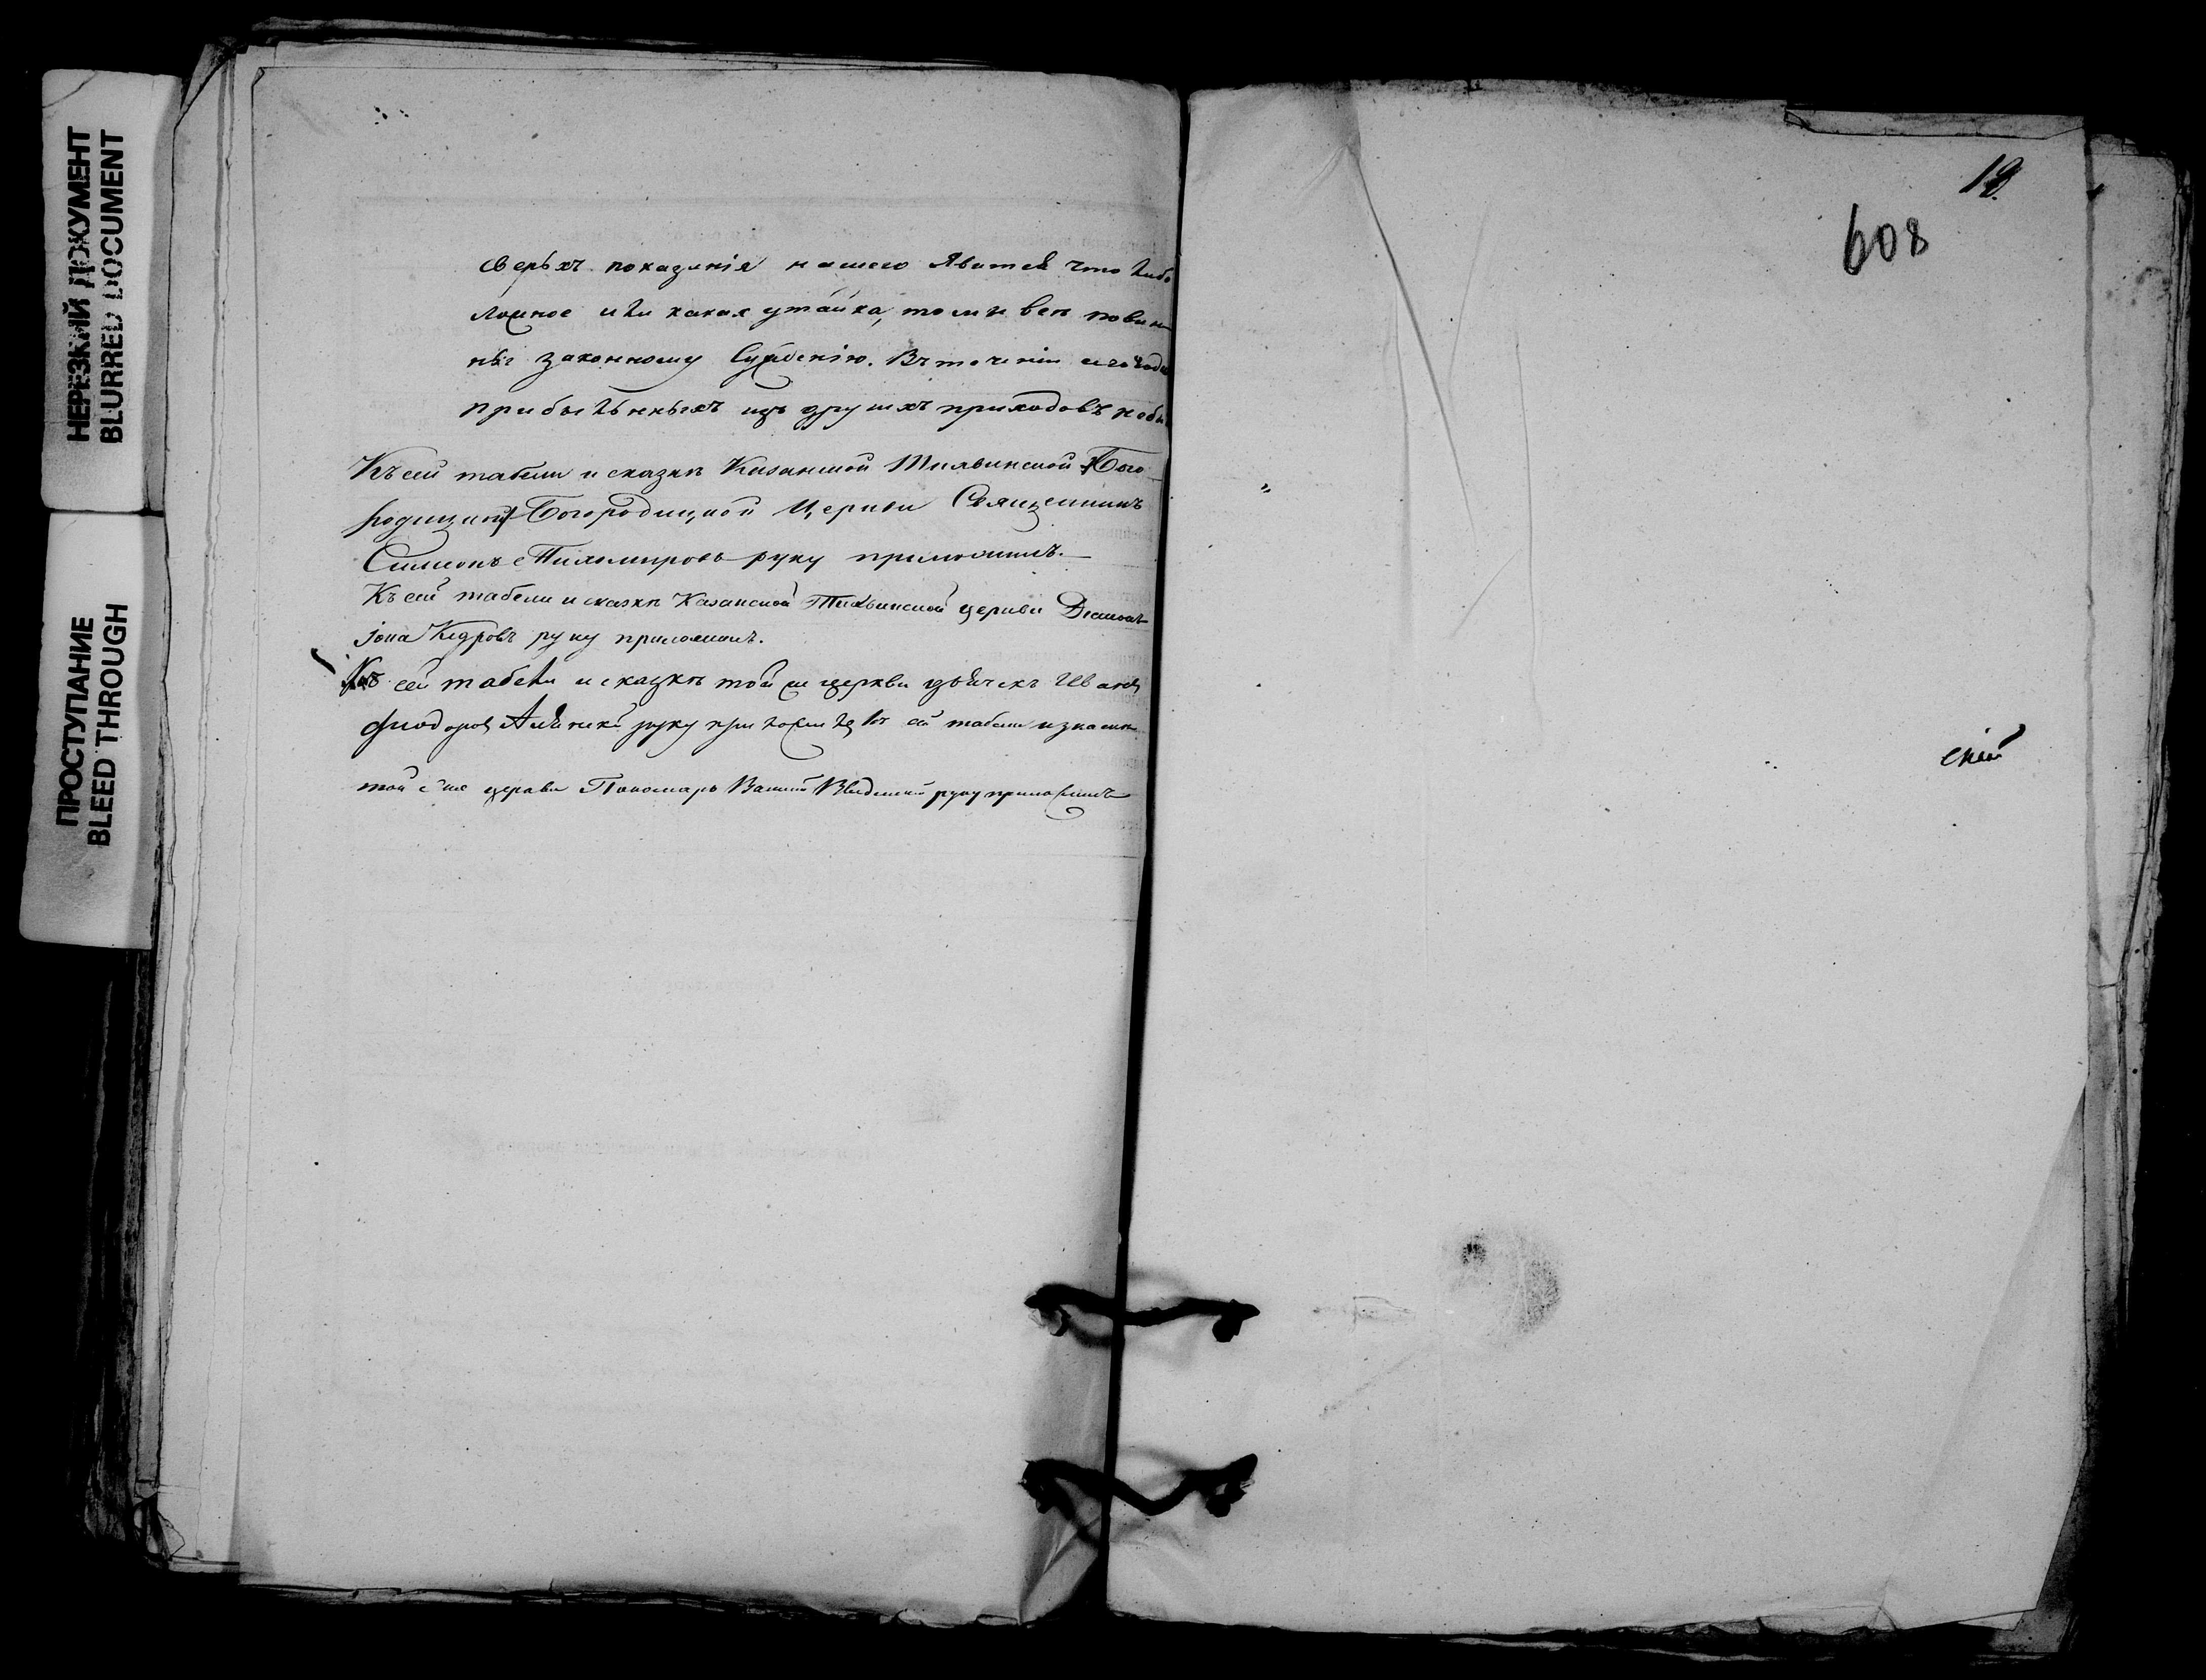 НЕРЕЗКИЙ ДОКУМЕНТ
BLURRED DOCUMENT
ПРОСТУПАНИЕ
BLEED THROUGH
сверьхъ показанія нашего явится что либо
ложное или какая утайка, то мы всѣ повин
ны законному сужденію. Въ теченіи сего года
прибыльныхъ изъ другихъ приходовъ небы
Къ сей табели и сказкѣ Казанской Тихвинской Бого
родицкой Богородицкой Церкви Священникъ
Симеонъ Тихомировъ руку приложилъ.
Къ сей табели и сказкѣ Казанской Тихвинской церкви Діаконъ
Іона Кедровъ руку приложилъ.
Къ сей табели и сказкѣ той же церкви дьячекъ Иванъ
Фиодоровъ руку приложилъ Къ сей табели и сказкѣ
той же церкви Пономарь Введенскій руку приложилъ
19.
608
скій